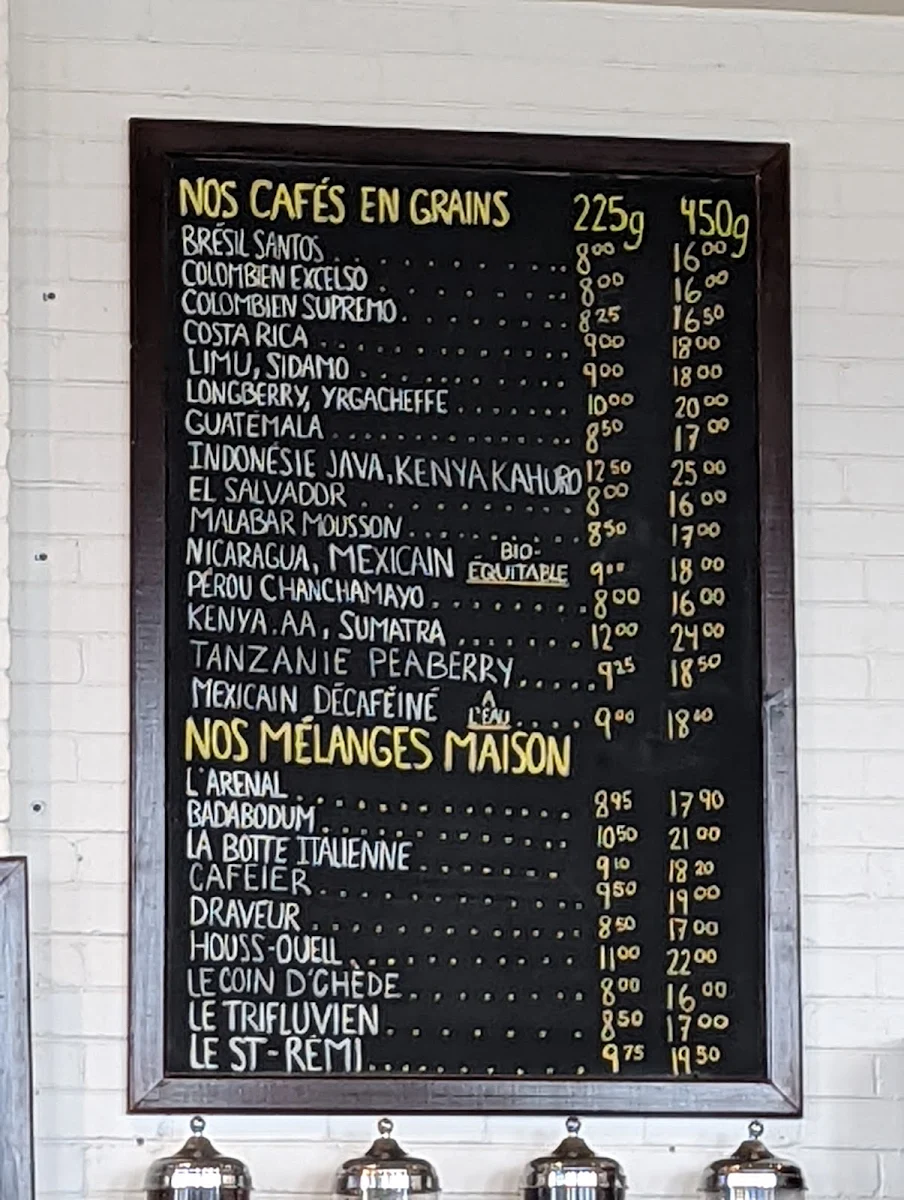 NOS CAFÉS EN GRAINS 225g 450g
BRÉSIL SANTOS.......... 8⁰⁰ 16⁰⁰
COLOMBIEN EXCELSO....... 8⁰⁰ 16⁰⁰
COLOMBIEN SUPREMO....... 8²⁵ 16⁵⁰
COSTA RICA............. 9⁰⁰ 18⁰⁰
LIMU, SIDAMO........... 9⁰⁰ 18⁰⁰
LONGBERRY, YRGACHEFFE....... 10⁰⁰ 20⁰⁰
GUATÉMALA.............. 8⁵⁰ 17⁰⁰
INDONÉSIE JAVA, KENYA KAHURO 12⁵⁰ 25⁰⁰
EL SALVADOR............ 8⁰⁰ 16⁰⁰
MALABAR MOUSSON......... 8⁵⁰ 17⁰⁰
NICARAGUA, MEXICAIN BIO-ÉQUITABLE 9⁰⁰ 18⁰⁰
PÉROU CHANCHAMAYO........ 8⁰⁰ 16⁰⁰
KENYA.AA, SUMATRA....... 12⁰⁰ 24⁰⁰
TANZANIE PEABERRY..... 9²⁵ 18⁵⁰
MEXICAIN DÉCAFÉINÉ À L'EAU.... 9⁰⁰ 18⁰⁰
NOS MÉLANGES MAISON
L'ARENAL............. 8⁹⁵ 17⁹⁰
BADABODUM............ 10⁵⁰ 21⁰⁰
LA BOTTE ITALIENNE....... 9¹⁰ 18²⁰
CAFÉIER............. 9⁵⁰ 19⁰⁰
DRAVEUR............. 8⁵⁰ 17⁰⁰
HOUSS-OUELL........... 11⁰⁰ 22⁰⁰
LE COIN D'CHÈDE......... 8⁰⁰ 16⁰⁰
LE TRIFLUVIEN........ 8⁵⁰ 17⁰⁰
LE ST-RÉMI.......... 9⁷⁵ 19⁵⁰